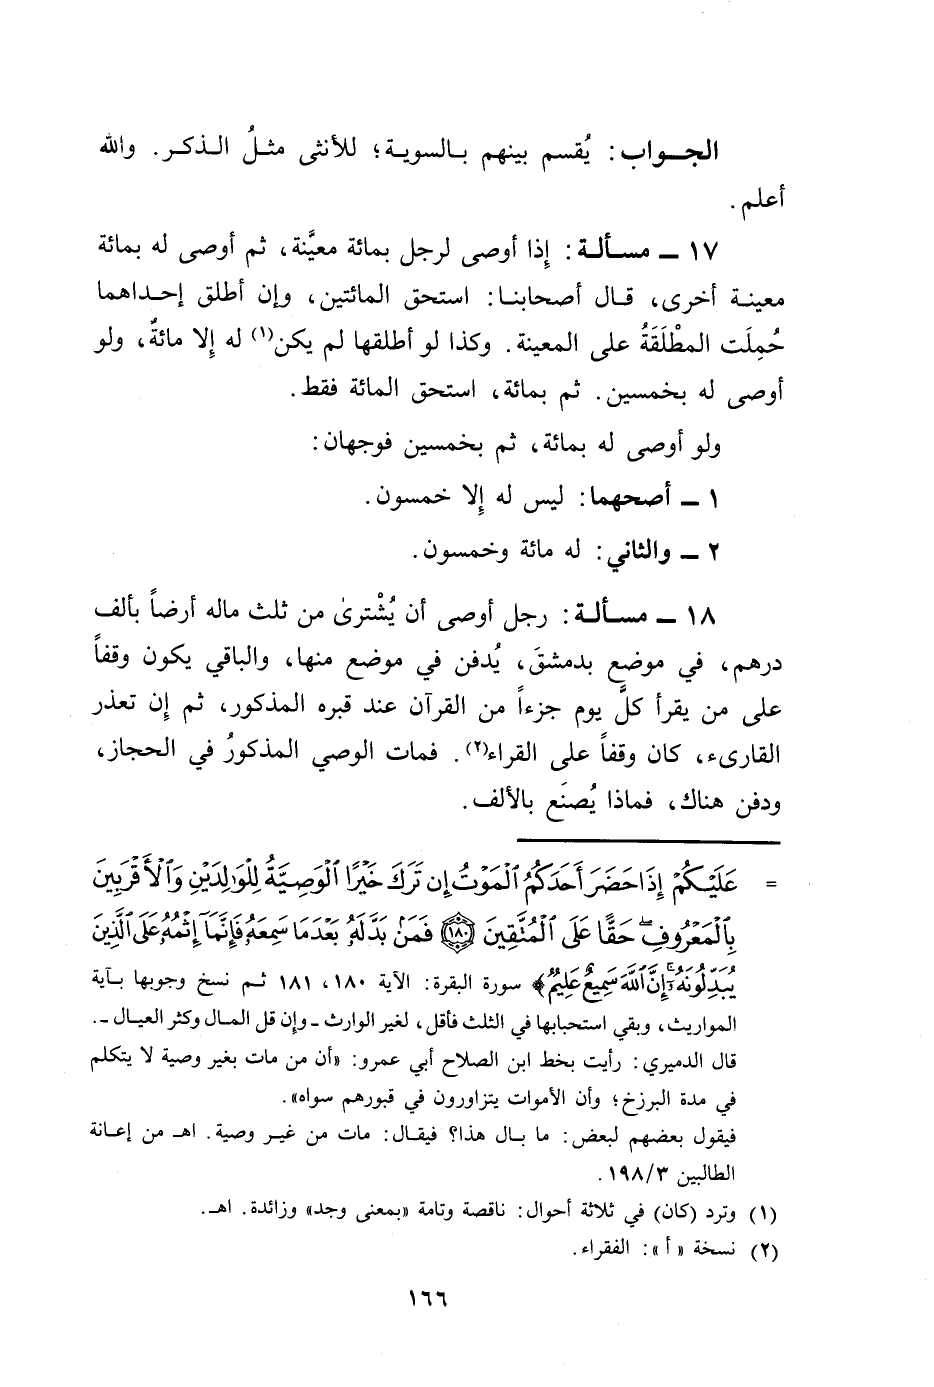 الجـواب: يُقسم بينهم بـالسوية؛ للأنثى مثـلُ الـذكـر. والله
أعلم.
١٧ ـ مسـألـة: إذا أوصى لرجل بمائة معيَّنة، ثم أوصى له بمائة
معينـة أخرى، قـال أصحابنـا: استحق المائتين، وإن أطلق إحـداهما
حُمِلَت المطْلَقَةُ على المعينة. وكذا لو أطلقها لم يكن(١) له إلا مائةٌ، ولو
أوصى له بخمسين. ثم بمائة، استحق المائة فقط.
ولو أوصى له بمائة، ثم بخمسين فوجهان:
١ ـ أصحهما: ليس له إلا خمسون.
٢ ـ والثاني: له مائة وخمسون.
١٨ ـ مسـألـة: رجل أوصى أن يُشْترىٰ من ثلث ماله أرضاً بألف
درهم، في موضع بدمشقَ، يُدفن في موضع منها، والباقي يكون وقفاً
على من يقرأ كلَّ يوم جزءاً من القرآن عند قبره المذكور، ثم إن تعذر
القارىء، كان وقفاً على القراء(٢). فمات الوصي المذكورُ في الحجاز،
ودفن هناك، فماذا يُصنَع بالألف.
= عَلَيْكُمْ إِذَا حَضَرَ أَحَدَكُمُ ٱلْمَوْتُ إِن تَرَكَ خَيْرًا ٱلْوَصِيَّةُ لِلْوَٰلِدَيْنِ وَٱلْأَقْرَبِينَ
بِٱلْمَعْرُوفِ ۖ حَقًّا عَلَى ٱلْمُتَّقِينَ ﴿١٨٠﴾ فَمَنۢ بَدَّلَهُۥ بَعْدَمَا سَمِعَهُۥ فَإِنَّمَآ إِثْمُهُۥ عَلَى ٱلَّذِينَ
يُبَدِّلُونَهُۥٓ ۚ إِنَّ ٱللَّهَ سَمِيعٌ عَلِيمٌ﴾ سورة البقرة: الآية ١٨٠، ١٨١ ثـم نسخ وجوبها بـآية
المواريث، وبقي استحبابها في الثلث فأقل، لغير الوارث ـ وإن قل المال وكثر العيال ـ.
قال الدميري: رأيت بخط ابن الصلاح أبي عمرو: «أن من مات بغير وصية لا يتكلم
في مدة البرزخ؛ وأن الأموات يتزاورون في قبورهم سواه».
فيقول بعضهم لبعض: ما بـال هذا؟ فيقـال: مات من غيـر وصية. اهـ من إعـانة
الطالبين ١٩٨/٣.
(١) وترد (كان) في ثلاثة أحوال: ناقصة وتامة «بمعنى وجد» وزائدة. اهـ.
(٢) نسخة «أ»: الفقراء.
١٦٦